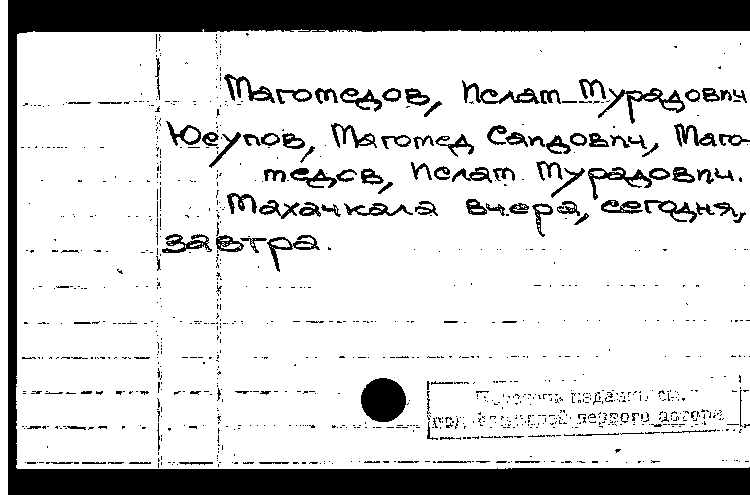 Магомедов, Ислам Мурадович
Юсупов, Магомед Саидович, Маго-
медов, Ислам Мурадович.
Махачкала вчера, сегодня,
завтра.
Перечень изданий см.
под фамилией первого автора